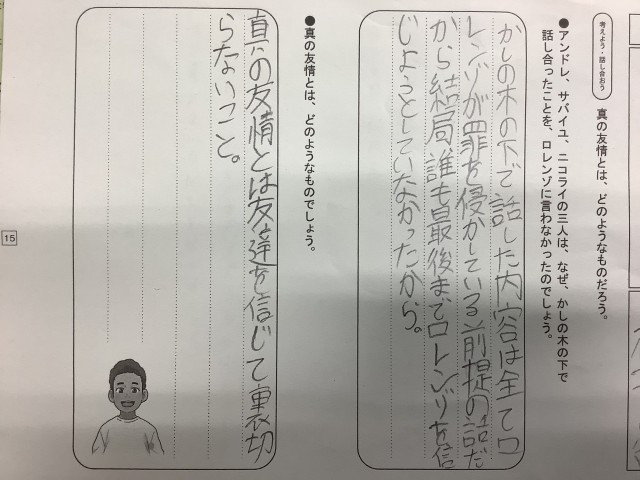 考えよう・話し合おう
真の友情とは、どのようなものだろう。
●アンドレ、サバイユ、ニコライの三人は、なぜ、かしの木の下で
話し合ったことを、ロレンゾに言わなかったのでしょう。
かしの木の下で話した内容は全てロ
レンゾが罪を侵かしている前提の話だ
から結局誰も最後までロレンゾを信
じようとしていなかったから。
●真の友情とは、どのようなものでしょう。
真の友情とは友達を信じて裏切
らないこと。
15